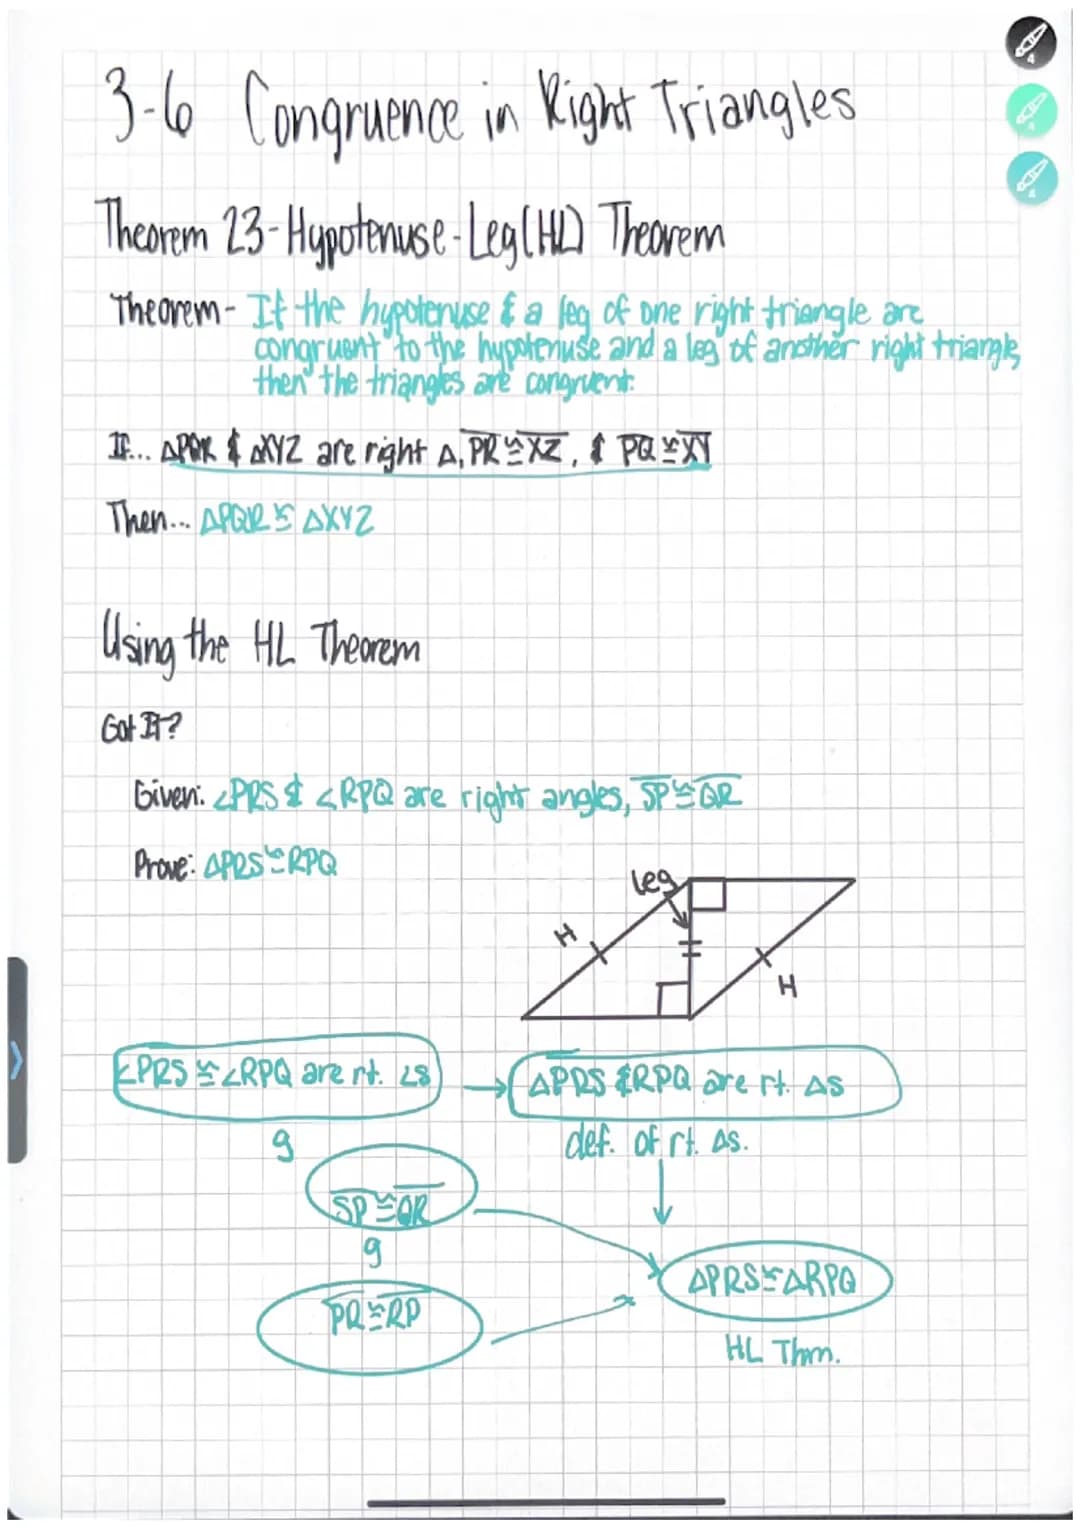 3-6 Congruence in Right Triangles
Theorem 23-Hypotenuse-Leg(HL) Theorem
Theorem- If the hypotenuse & a leg of one right triangle are
congruent to the hypotenuse and a leg of another right triangle,
then the triangles are congruent.
If... △PQR & △XYZ are right △, PR≅XZ, & PQ≅XY
Then... △PQR≅△XYZ
Using the HL Theorem
Got It?
Given: ∠PRS & ∠RPQ are right angles, SP≅QR
Prove: △PRS≅RPQ
leg
H
H
∠PRS≅∠RPQ are rt. ∠s
△PRS &RPQ are rt. △s
g
def. of rt. △s.
SP≅QR
g
△PRS≅△RPQ
PR≅RP
HL Thm.
4
4
4